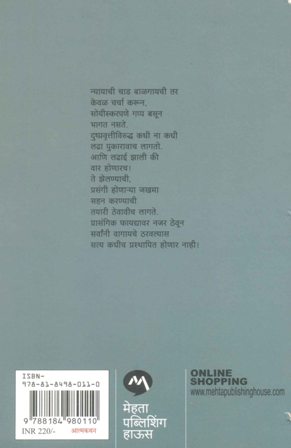 न्यायाची चाड बाळगायची तर
केवळ चर्चा करून,
सोयीस्करपणे गप्प बसून
भागत नसते.
दुष्प्रवृत्तींविरुद्ध कधी ना कधी
लढा पुकारावाच लागतो.
आणि लढाई झाली की
वार होणारच!
ते झेलण्याची,
प्रसंगी होणाऱ्या जखमा
सहन करण्याची
तयारी ठेवावीच लागते.
प्रासंगिक फायद्यावर नजर ठेवून
सर्वांनी वागायचे ठरवल्यास
सत्य कधीच प्रस्थापित होणार नाही!
ISBN-
978-81-8498-011-0
9 788184 980110
INR 220/- आत्मकथन
मेहता
पब्लिशिंग
हाऊस
ONLINE
SHOPPING
www.mehtapublishinghouse.com